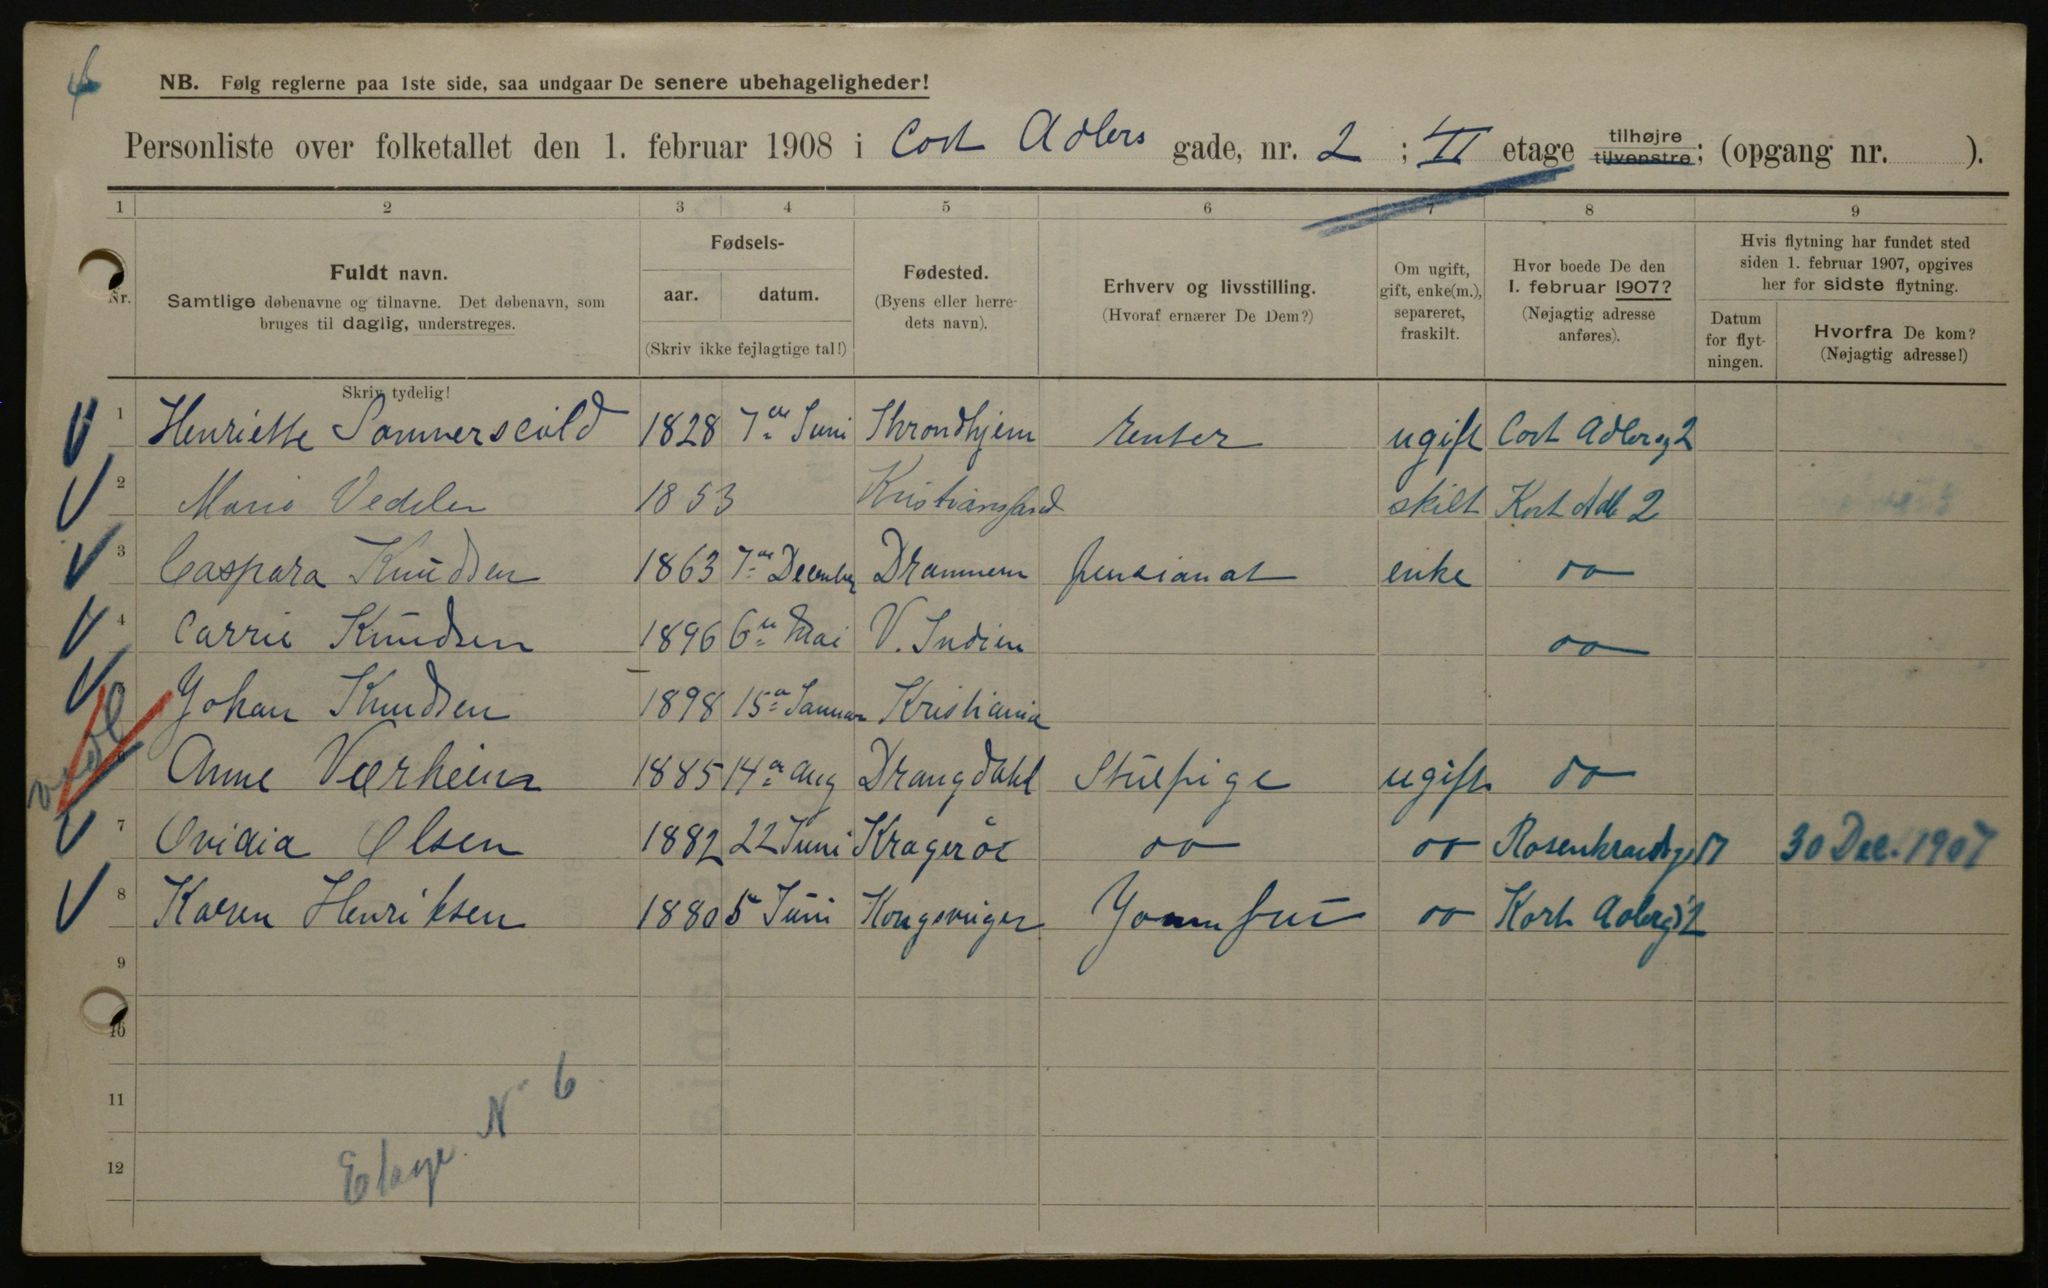 NB. Følg reglerne paa 1ste side, saa undgaar De senere ubehageligheder!
Personliste over folketallet den 1. februar 1908 i Cort Adlers gade, nr. 2 ; II etage tilhøjre tilvenstre; (opgang nr. ).
1 2 3 4 5 6 7 8 9
Nr.
Fuldt navn.
Samtlige døbenavne og tilnavne. Det døbenavn, som
bruges til daglig, understreges.
Skriv tydelig!
Fødsels-
aar. datum.
(Skriv ikke fejlagtige tal!)
Fødested.
(Byens eller herre-
dets navn).
Erhverv og livsstilling.
(Hvoraf ernærer De Dem?)
Om ugift,
gift, enke(m.),
separeret,
fraskilt.
Hvor boede De den
1. februar 1907?
(Nøjagtig adresse
anføres).
Hvis flytning har fundet sted
siden 1. februar 1907, opgives
her for sidste flytning.
Datum
for flyt-
ningen.
Hvorfra De kom?
(Nøjagtig adresse!)
1 Henriette Sommerscild 1828 7de Juni Throndhjem renter ugift Cort Adlersg 2
2 Marie Vedeler 1853 Kristiansand skilt Kort Adl 2
3 Caspara Knudsen 1863 7de December Drammem pensionat enke do
4 Carrie Knudsen 1896 6te Mai V. Indien do
Johan Knudsen 1898 15de Januar Kristiania
6 Anne Værheim 1885 14de Aug Drangdahl Stuepige ugift do
7 Ovidia Olsen 1882 22 Juni Kragerøe do do Rosenkrandsgd 17 30 Dec. 1907
8 Karen Henriksen 1880 5 Juni Kongsvinger Jomfru do Kort Adlersgd 2
9
10
11
12
Etage N 6